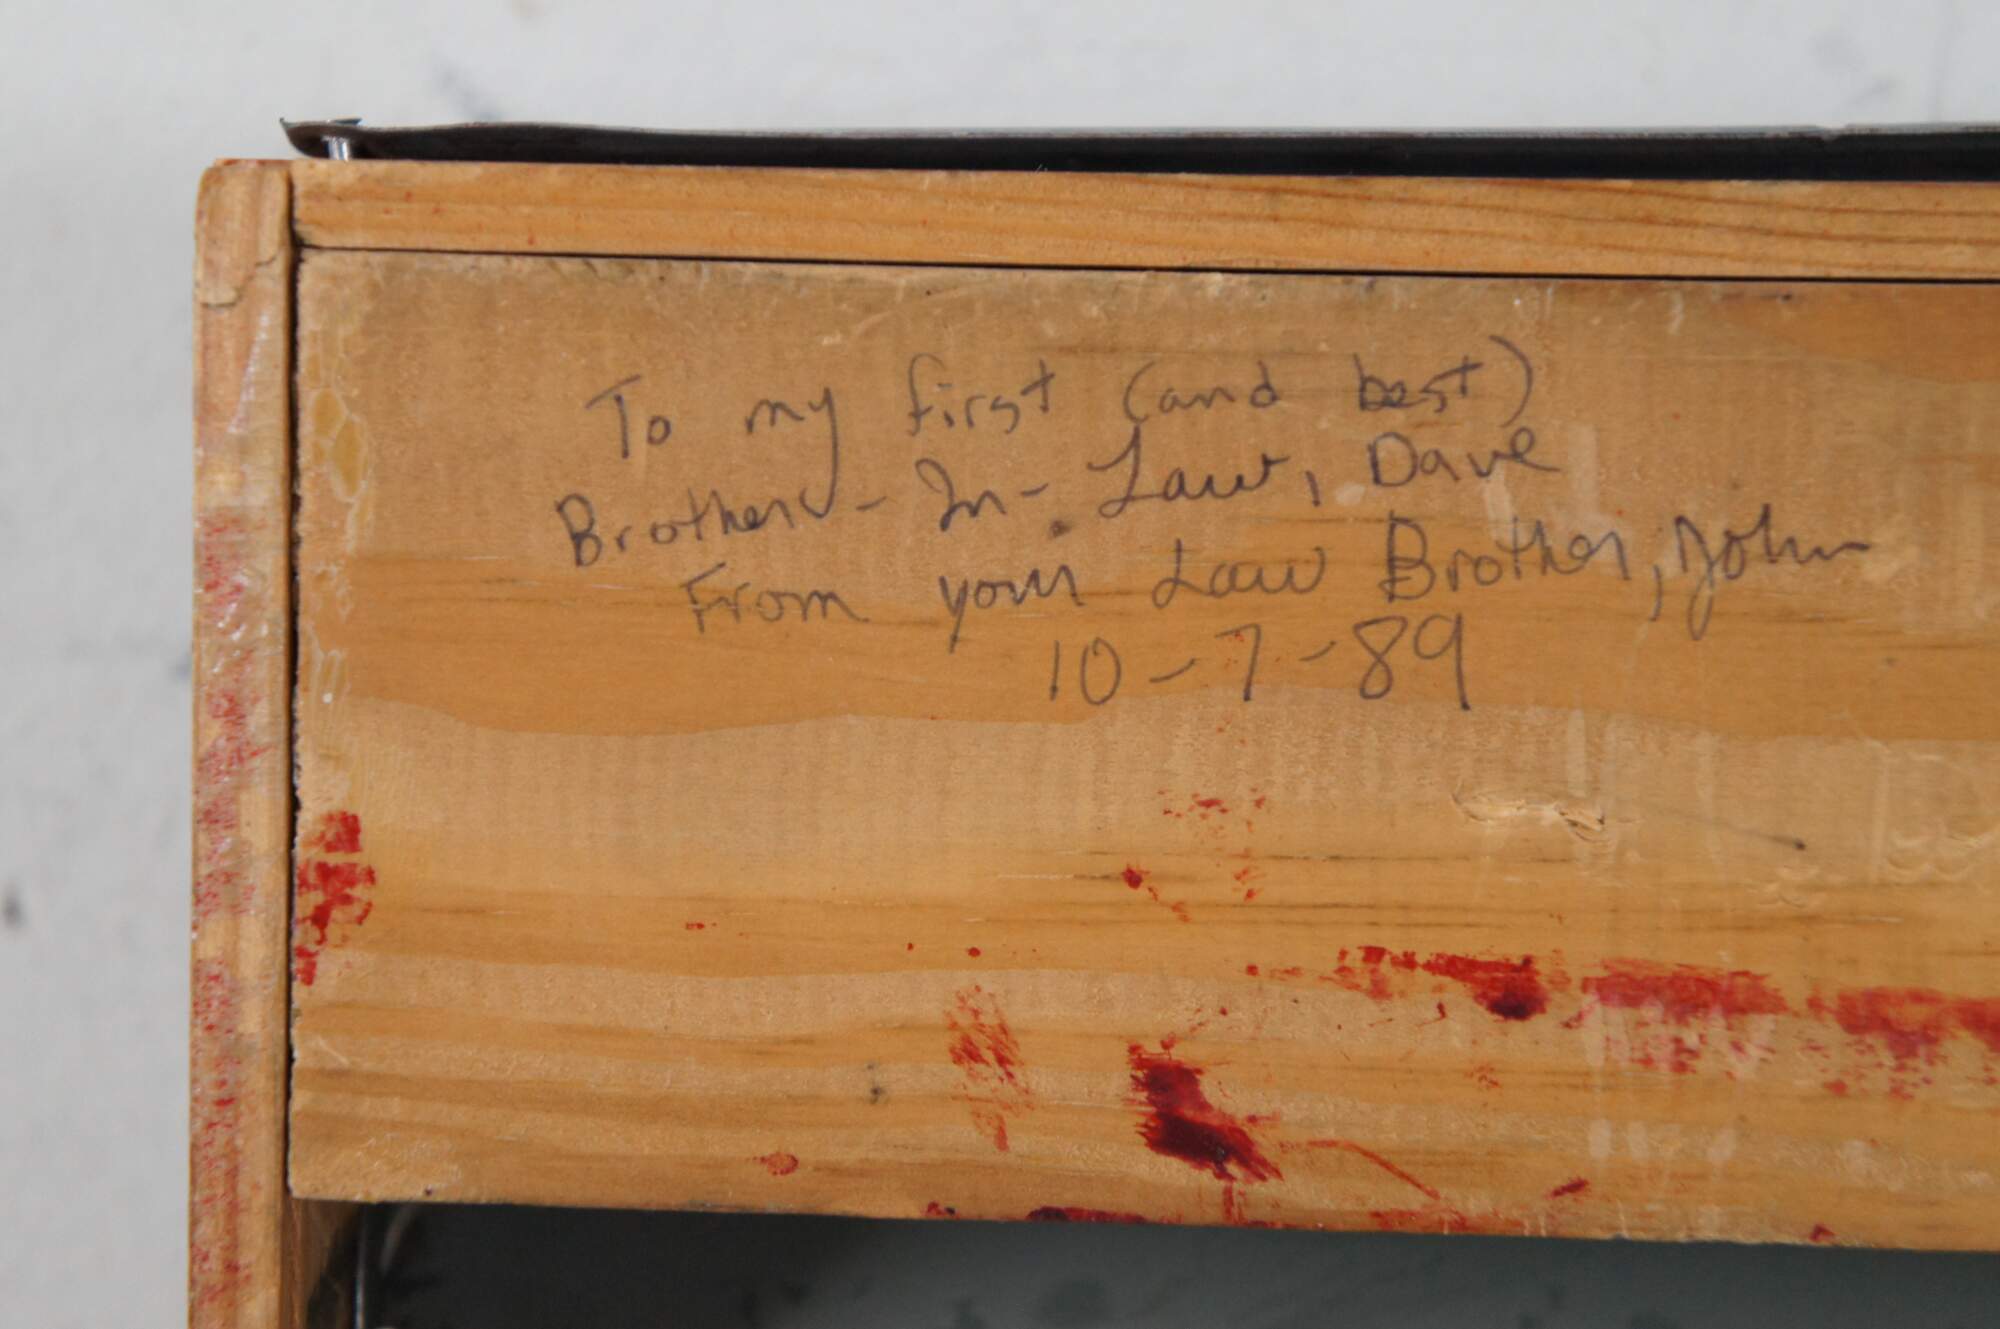 To my first (and best)
Brother - In - Law, Dave
From your Law Brother, John
10-7-89